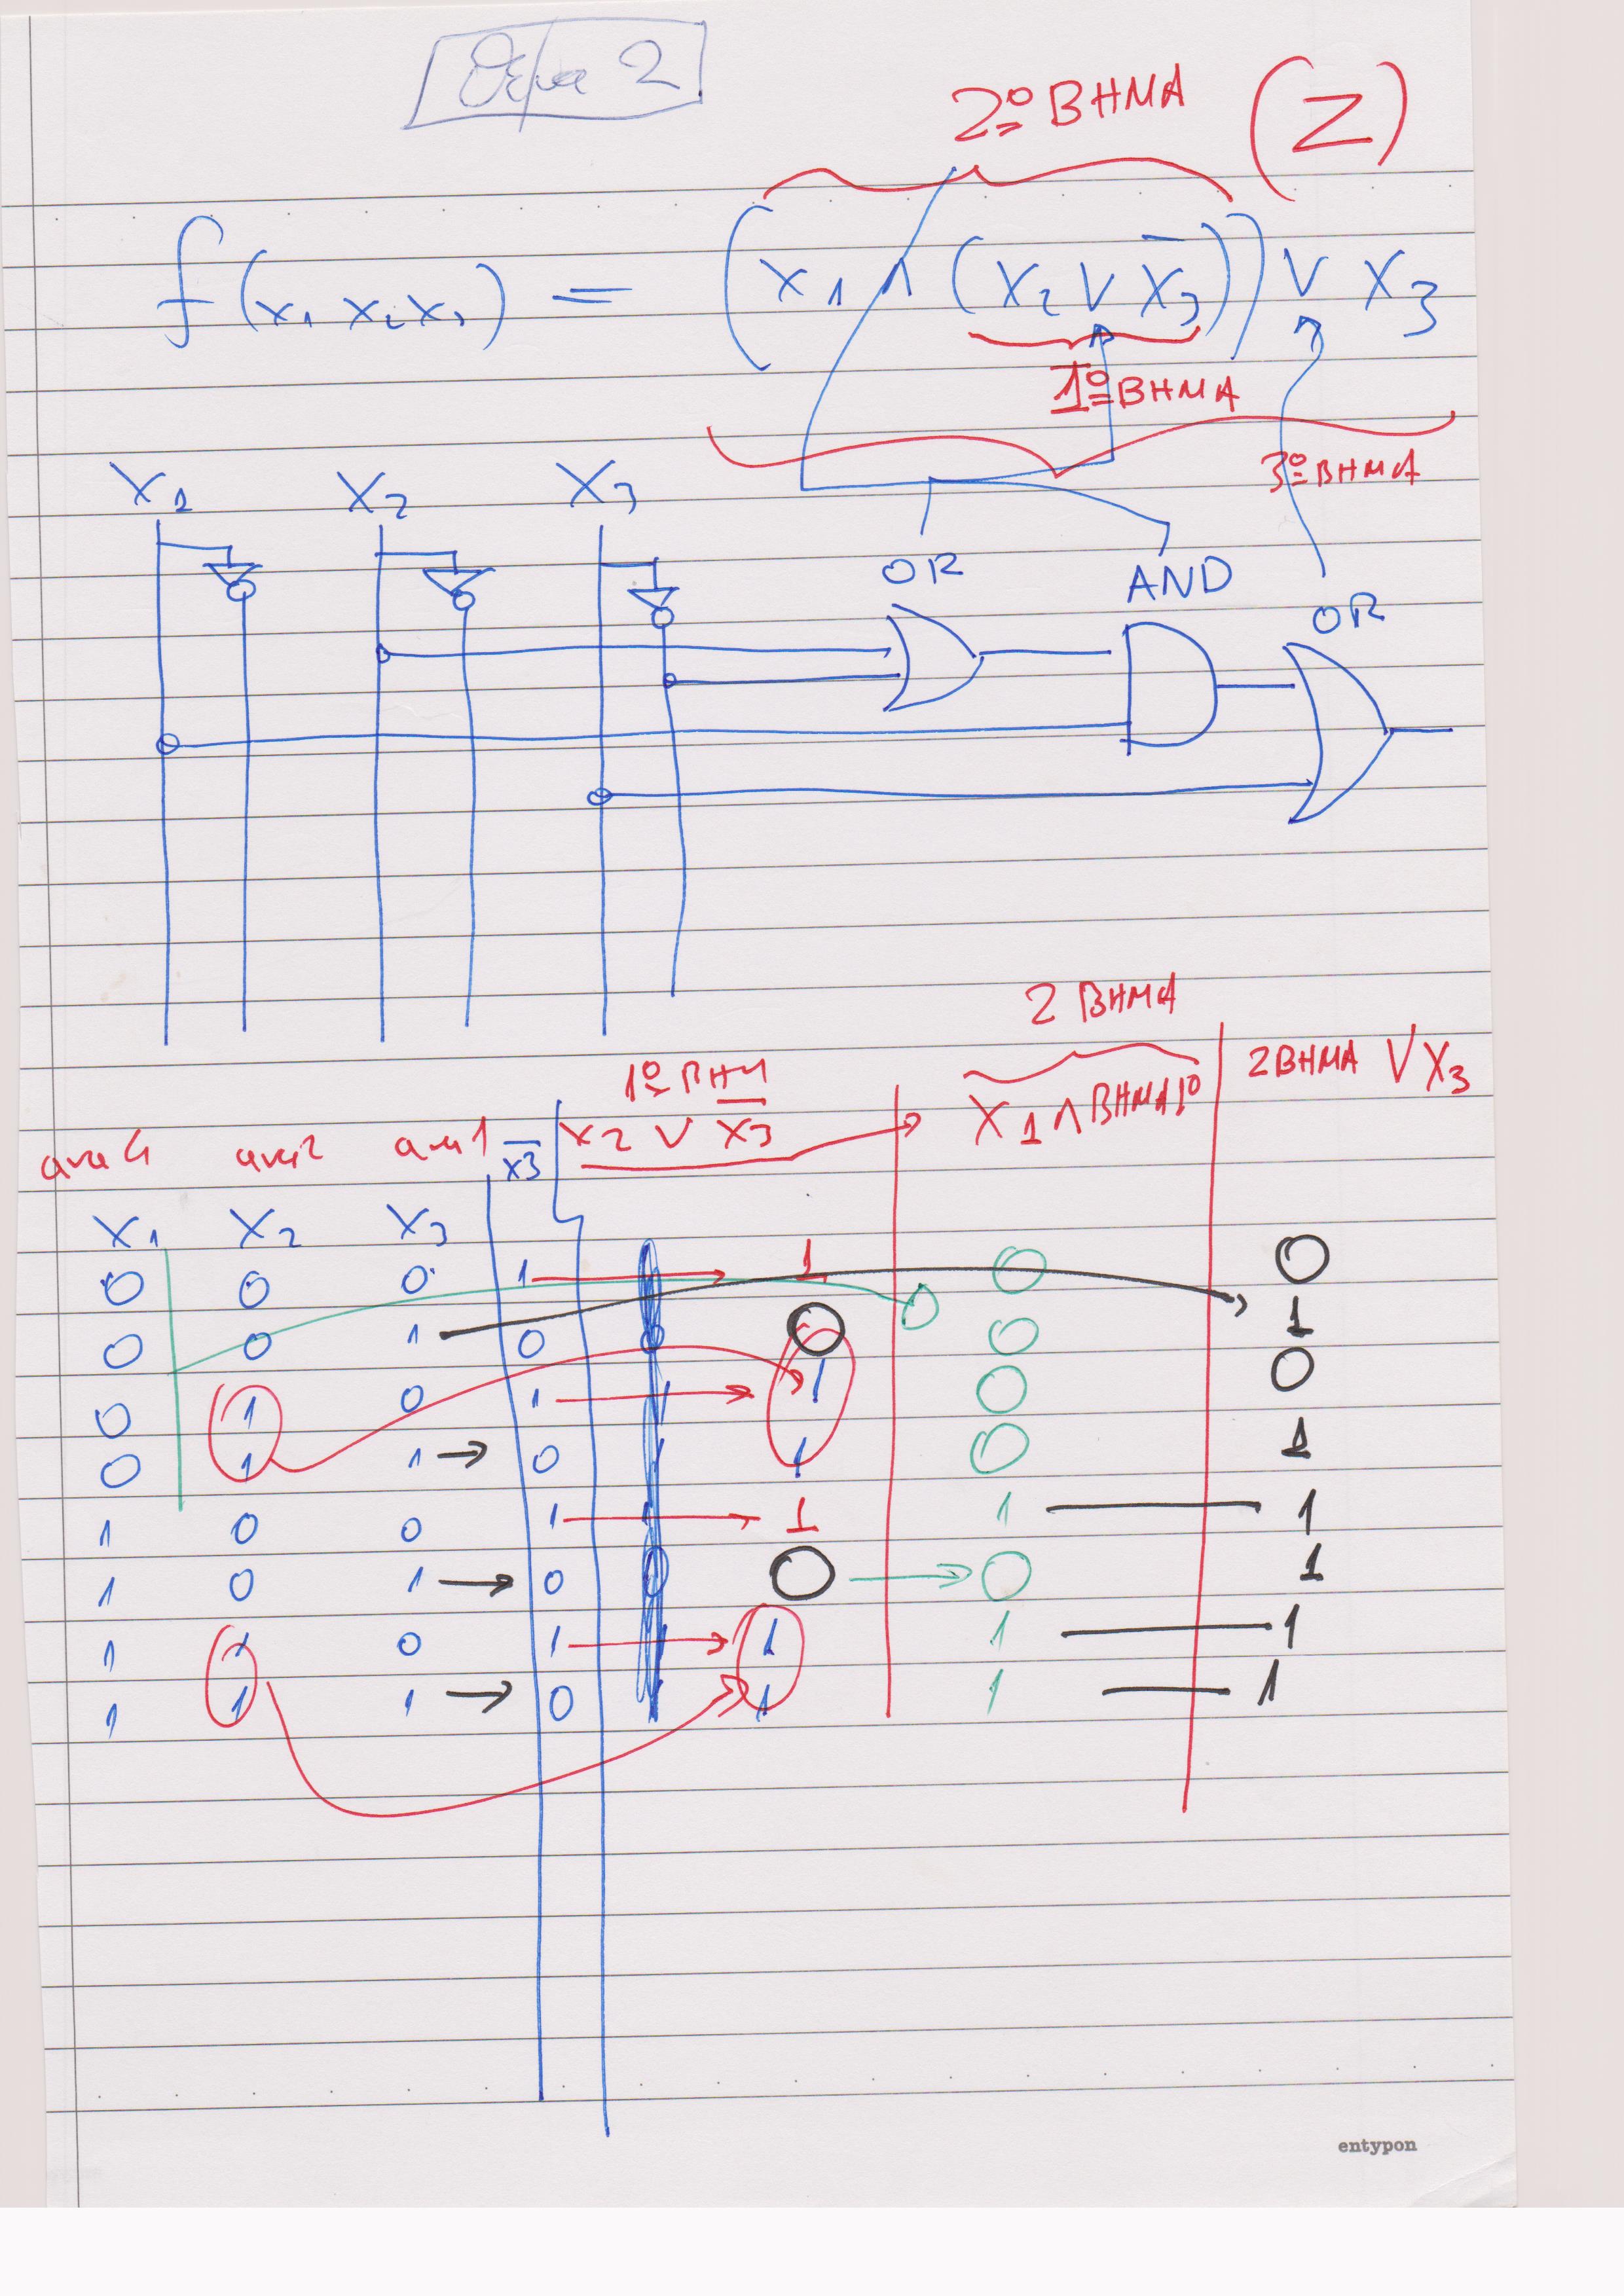 Θέμα 2
2ο ΒΗΜΑ (Z)
f(x1 x2 x3) = (x1 ∧ (x2 ∨ x̅3)) ∨ x3
1ο ΒΗΜΑ
3ο ΒΗΜΑ
X1 X2 X3
OR AND OR
2 ΒΗΜΑ
1ο ΒΗΜ 2ΒΗΜΑ ∨ X3
ανα 4 ανα 2 ανα 1 x̅3 x2 ∨ x̅3 X1 ∧ ΒΗΜΑ 1ο
X1 X2 X3
0 0 0 1 1 0 0
0 0 1 0 0 0 1
0 1 0 1 1 0 0
0 1 1 0 1 0 1
1 0 0 1 1 1 1
1 0 1 0 0 0 1
1 1 0 1 1 1 1
1 1 1 0 1 1 1
entypon